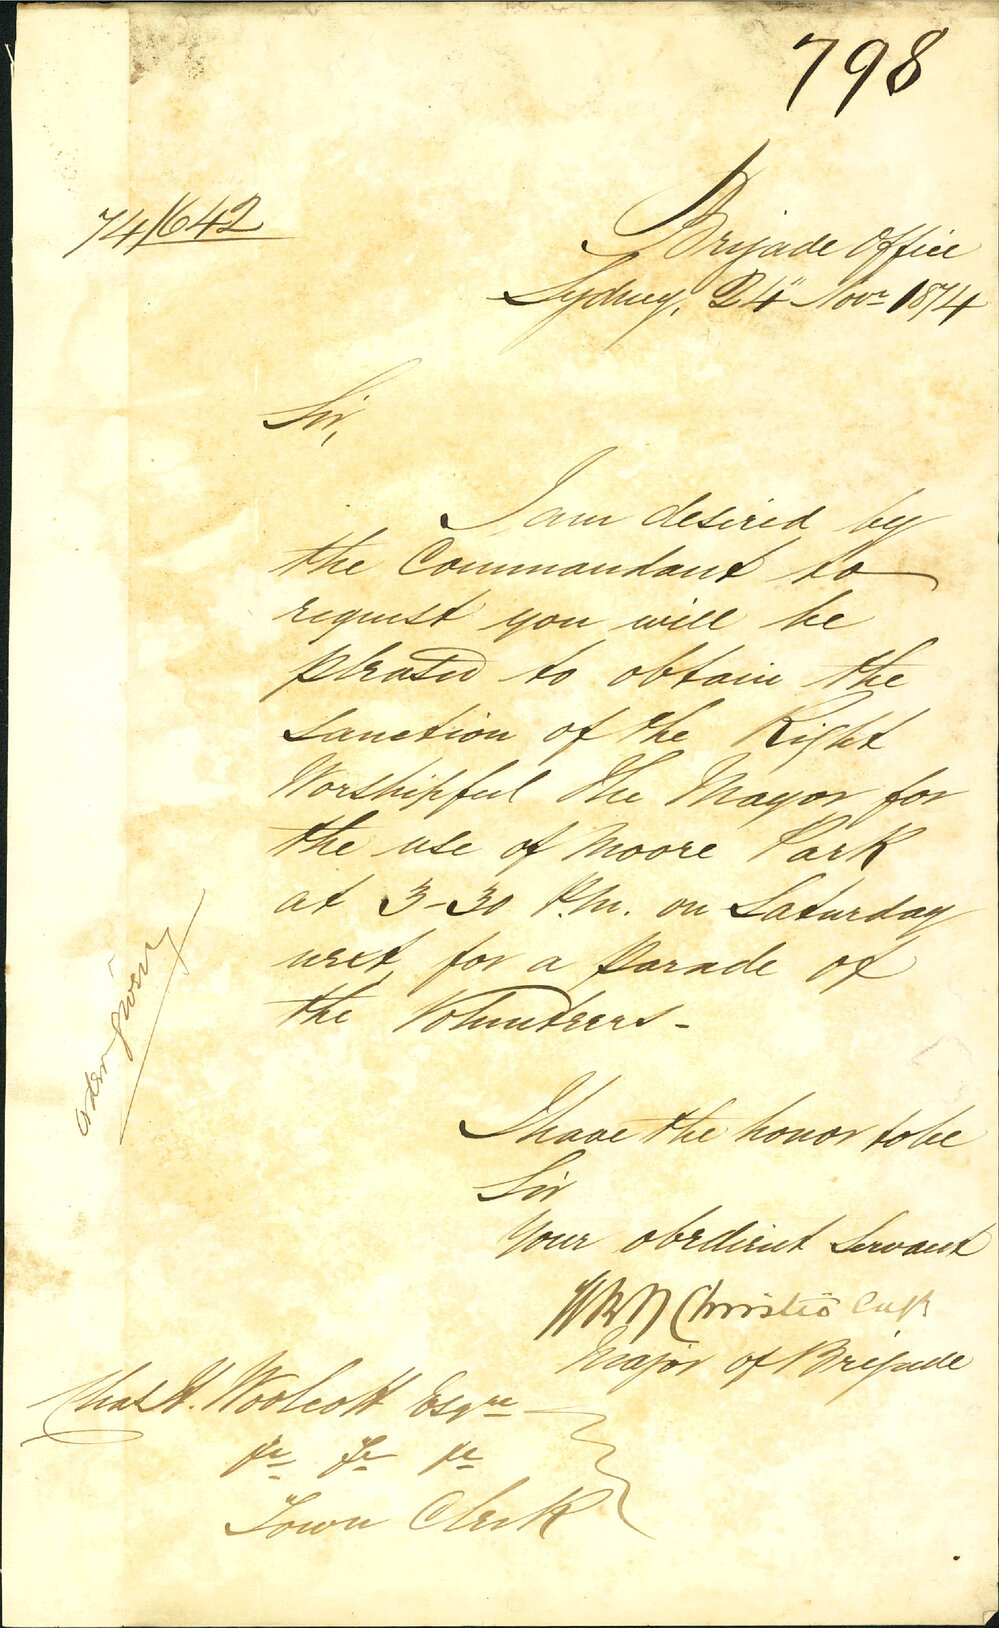 798
74/642
Brigade Office
Sydney, 24" Novr 1874
Sir,
I am desired by
the Commandant to
request you will be
pleased to obtain the
sanction of the Right
Worshipful The Mayor for
the use of Moore Park
at 3-30 P.M. on Saturday
next for a Parade of
the Volunteers -
I have the honor to be
Sir
Your obedient Servant
W B B Christie Capt
Major of Brigade
Chas H. Woolcott Esqre
Town Clerk